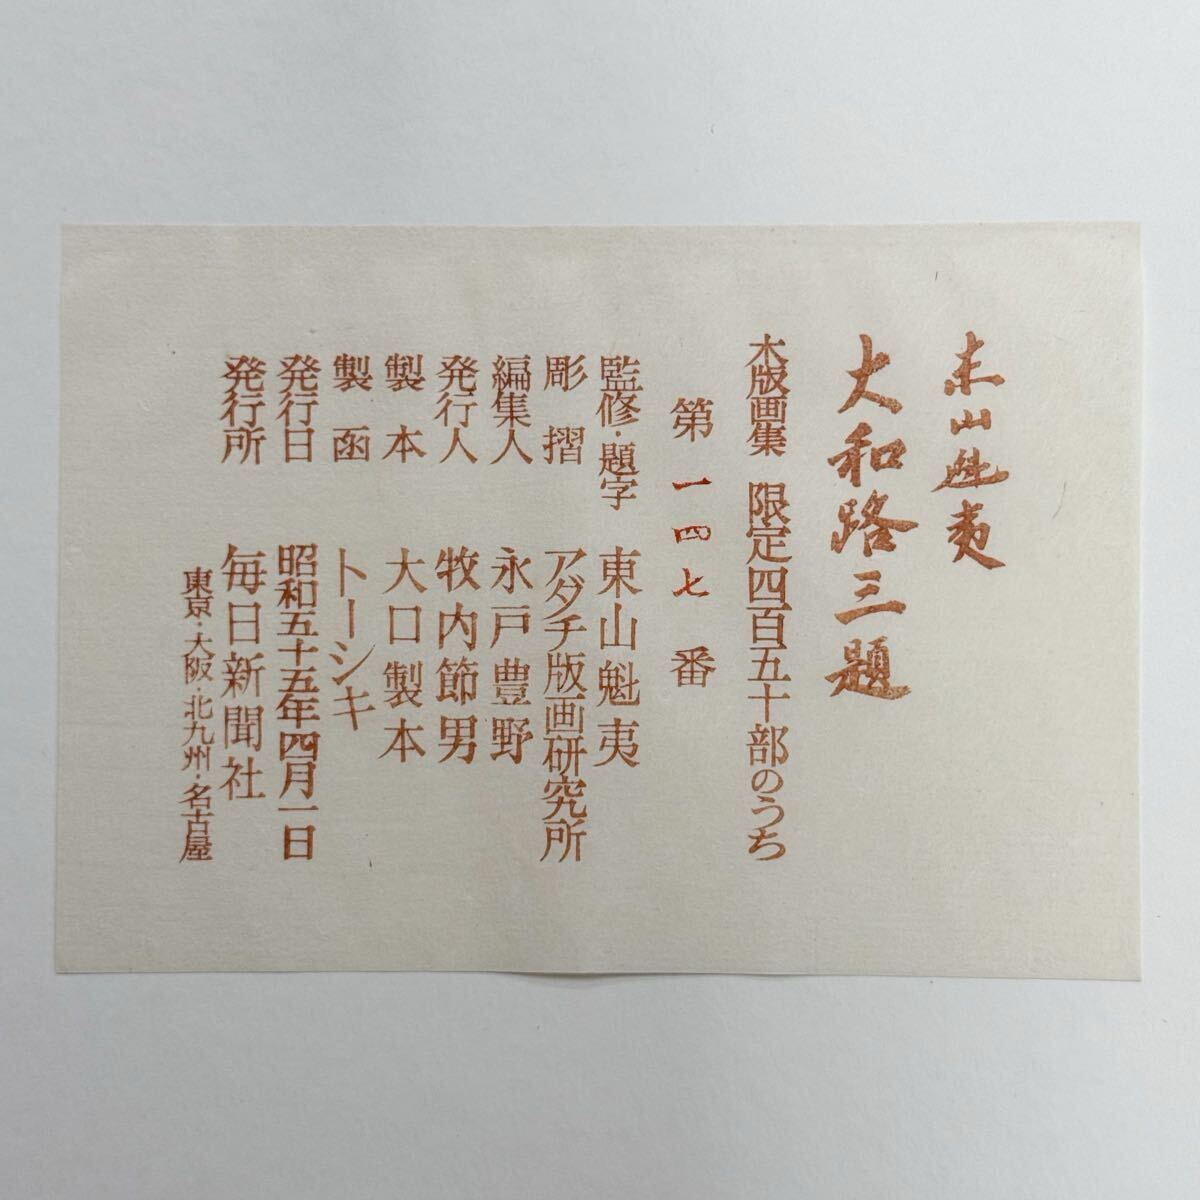 東山魁夷
大和路三題
木版画集 限定四百五十部のうち
第 一四七 番
監修・題字 東山魁夷
彫摺 アダチ版画研究所
編集人 永戸豊野
発行人 牧内節男
製本 大口製本
製函 トーシキ
発行日 昭和五十五年四月一日
発行所 毎日新聞社
東京・大阪・北九州・名古屋